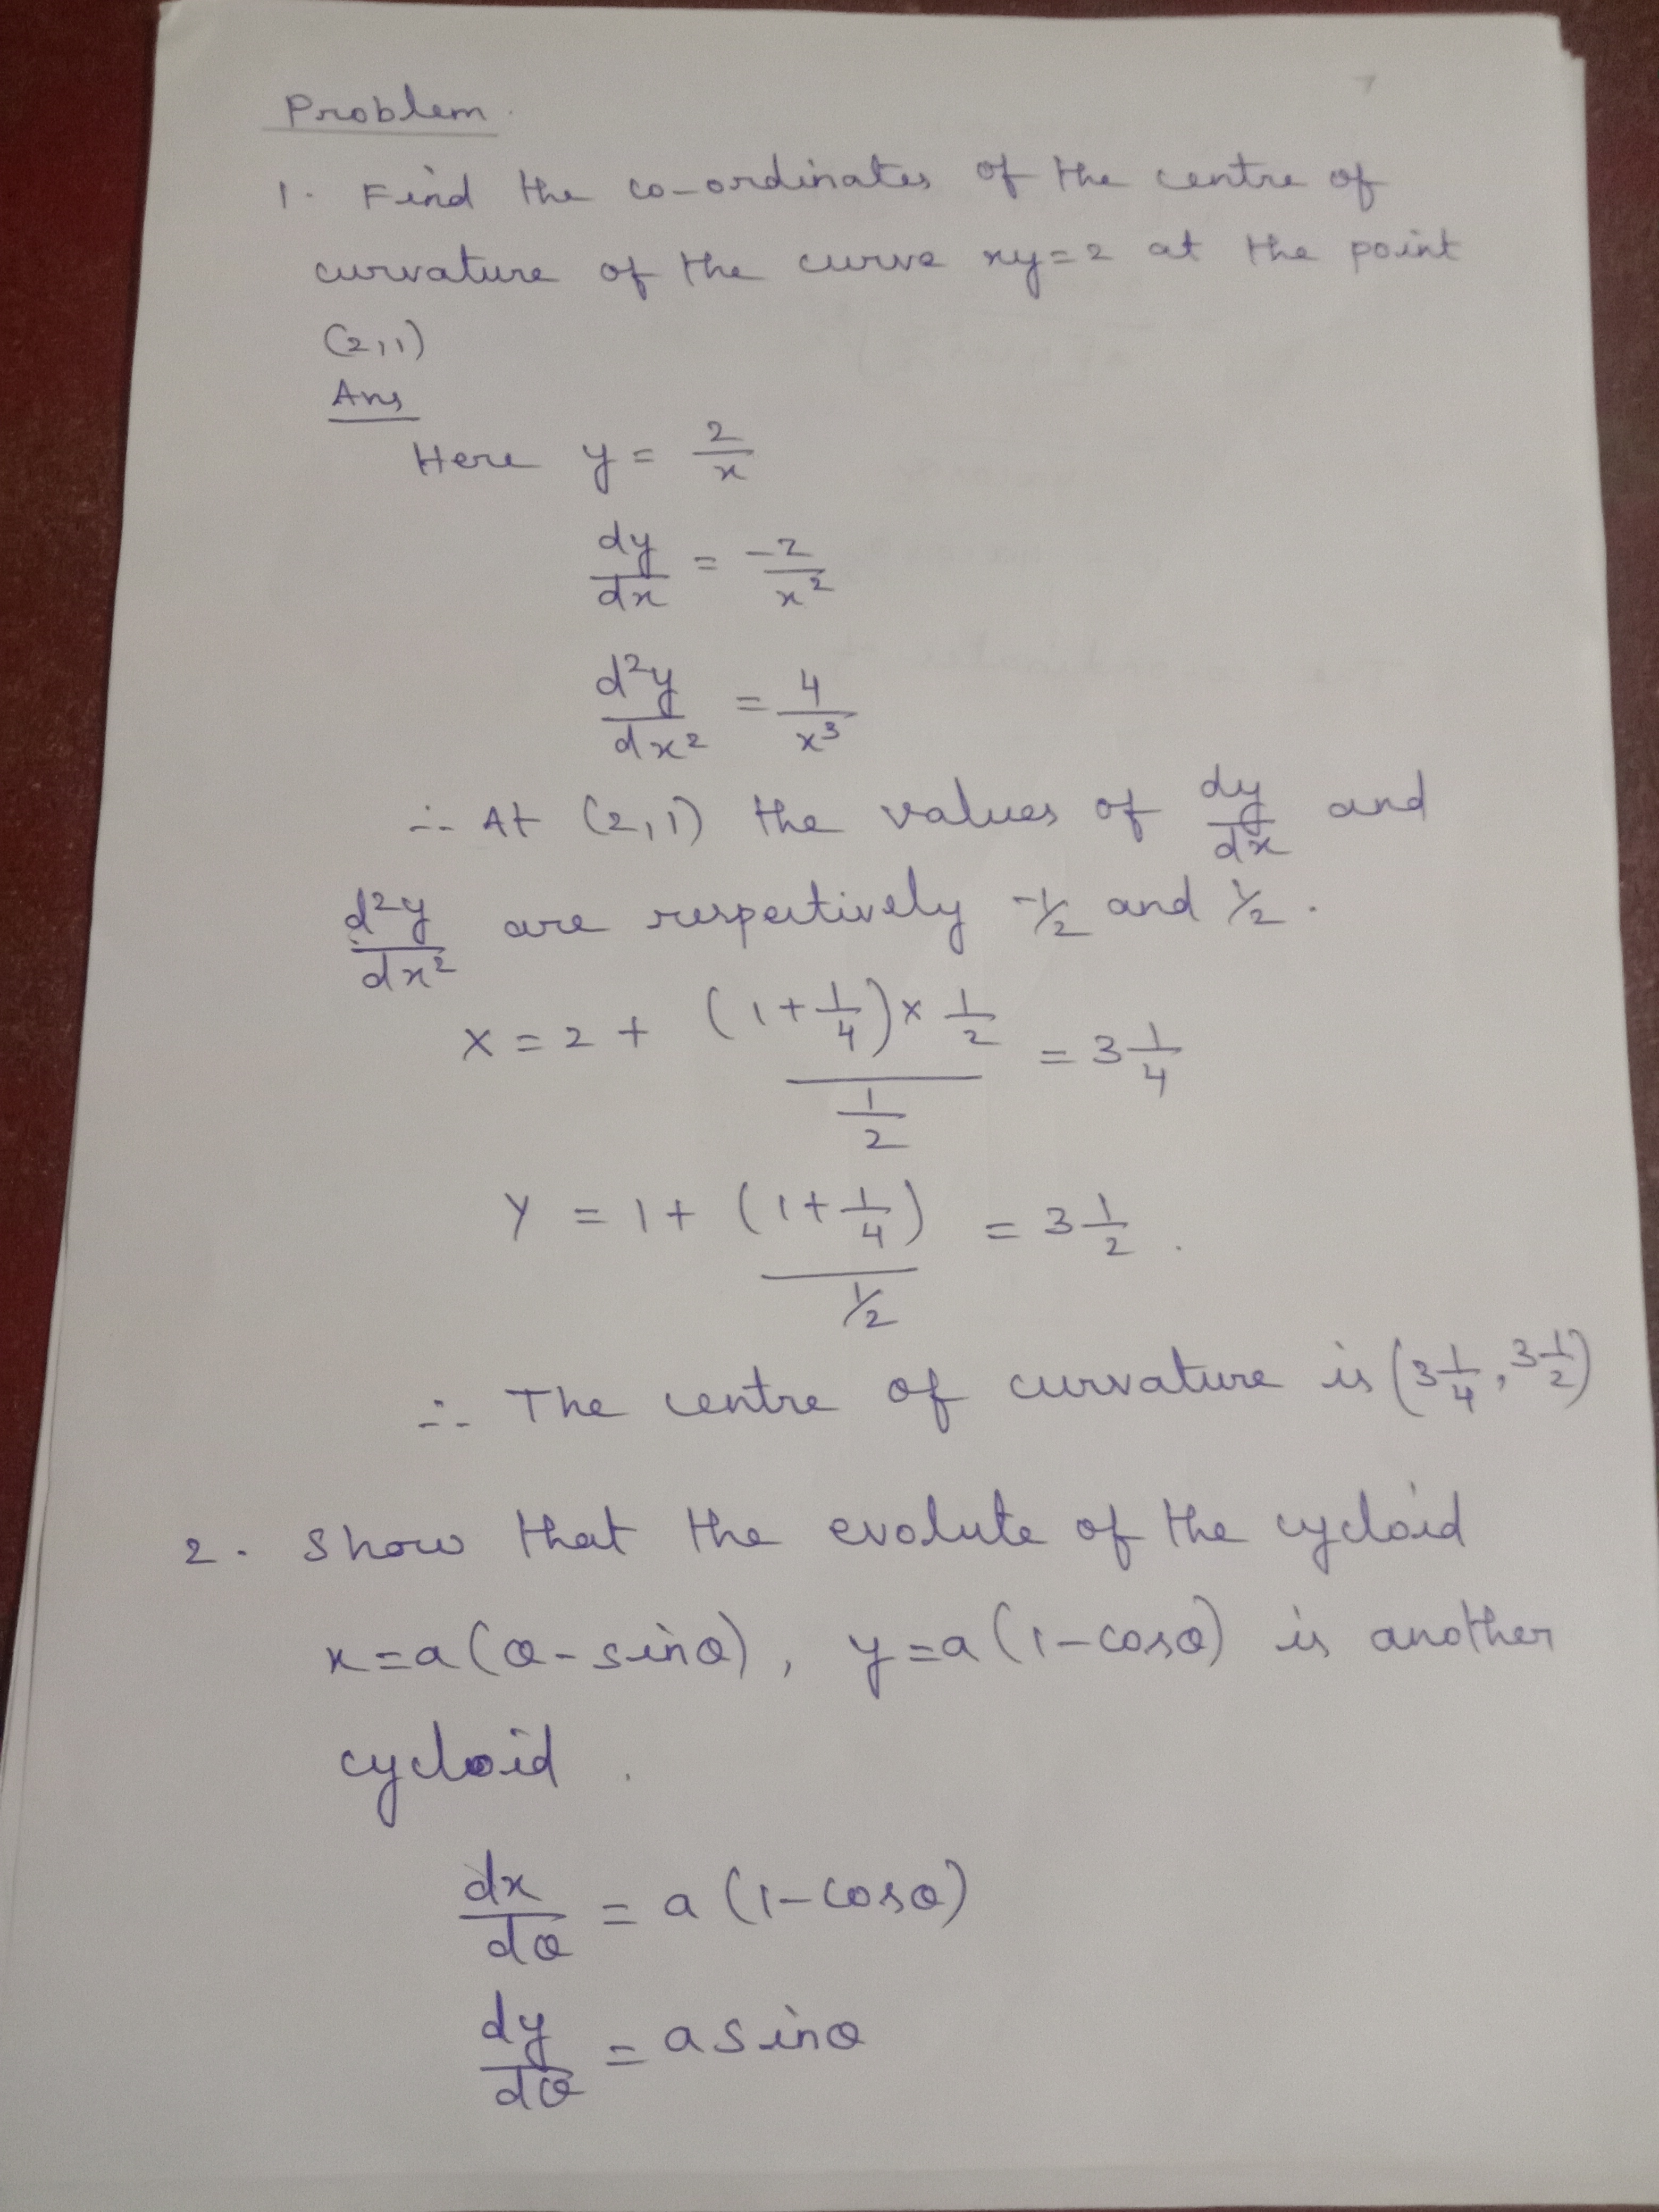 Problem.
1. Find the co-ordinates of the centre of
curvature of the curve xy=2 at the point
(2,1)
Ans
Here y = 2/x
dy/dx = -2/x²
d²y/dx² = 4/x³
∴ At (2,1) the values of dy/dx and
d²y/dx² are respectively -1/2 and 1/2.
X = 2 + (1+1/4)×1/2 / 1/2 = 3 1/4
Y = 1 + (1+1/4) / 1/2 = 3 1/2.
∴ The centre of curvature is (3 1/4, 3 1/2)
2. Show that the evolute of the cycloid
x=a(θ-sinθ), y=a(1-cosθ) is another
cycloid.
dx/dθ = a(1-cosθ)
dy/dθ = a sinθ